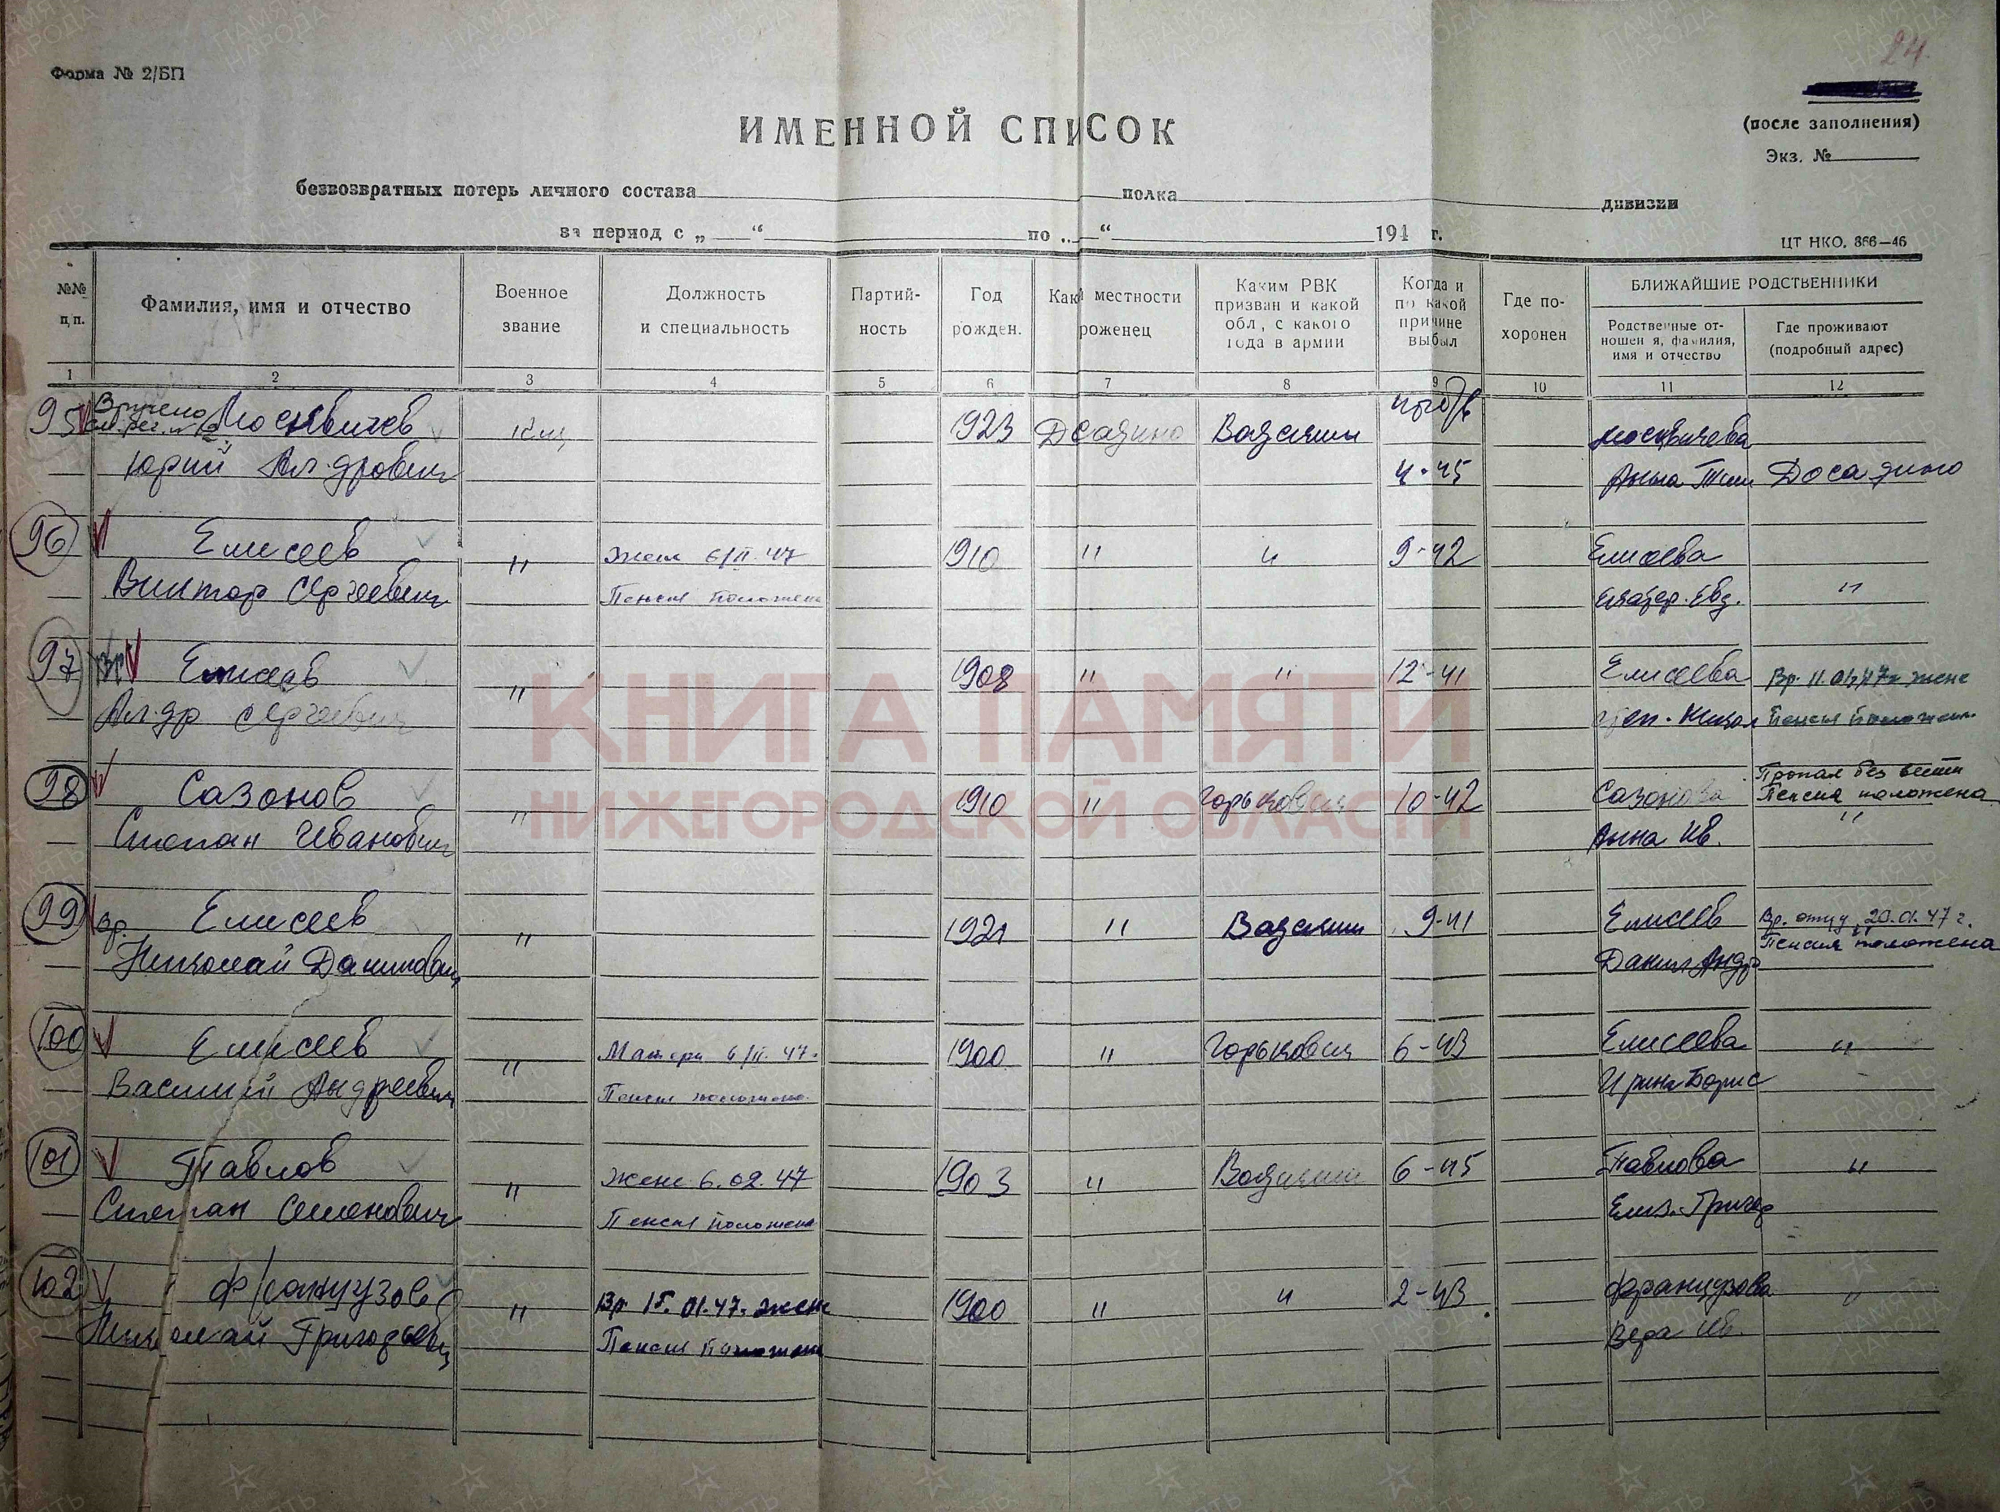 24.
Форма № 2/БП
ИМЕННОЙ СПИСОК
(после заполнения)
Экз. №
безвозвратных потерь личного состава полка дивизии
за период с „ “ по „ “ 194 г.
ЦТ НКО. 866—46
№№ п.п.
Фамилия, имя и отчество
Военное звание
Должность и специальность
Партий-ность
Год рожден.
Какой местности уроженец
Каким РВК призван и какой обл., с какого года в армии
Когда и по какой причине выбыл
Где по-хоронен
БЛИЖАЙШИЕ РОДСТВЕННИКИ
Родственные от-ношения, фамилия, имя и отчество
Где проживают (подробный адрес)
1 2 3 4 5 6 7 8 9 10 11 12
95 Вручено Москвичев 1923 Москвичева
Юрий Ал-дрович 4-45 Анна Тим Досадино
96 Елисеев " Жене 6/II.47 1910 " " 9-42 Елисеева
Виктор Сергеевич Пенсия положена Екатер. Евд. "
97 Вр Елисеев " 1908 " " 12-41 Елисеева Вр. 11.01.47г жене
Ал-др Сергеевич Пенсия положена
98 Сазонов " 1910 " Горьковский 10-42 Сазонова Пропал без вести
Пенсия положена
Степан Иванович Анна Ив. "
99 Вр. Елисеев " 1921 " 9-41 Елисеев Вр. отцу 20.01.47 г.
Николай Данилович Данил Андр Пенсия положена
100 Елисеев " Матери 6/II.47. 1900 " Горьковский 6-43 Елисеева "
Василий Андреевич Пенсия положена Ирина Борис
101 Павлов " Жене 6.02.47 1903 " 6-45 Павлова "
Степан Семенович Пенсия положена Елиз. Григор
102 Французов " Вр 15.01.47. жене 1900 " " 2-43 Французова "
Николай Григорьевич Пенсия положена Вера Ив.
КНИГА ПАМЯТИ
НИЖЕГОРОДСКОЙ ОБЛАСТИ
ПАМЯТЬ НАРОДА